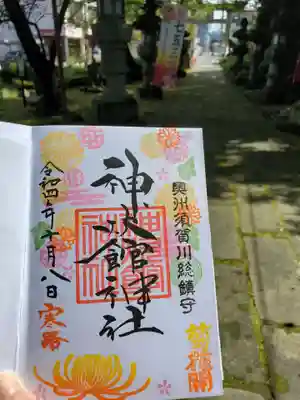 奥州須賀川総鎮守
菊花開
神炊館神社
令和四年十月八日
寒露
七五三